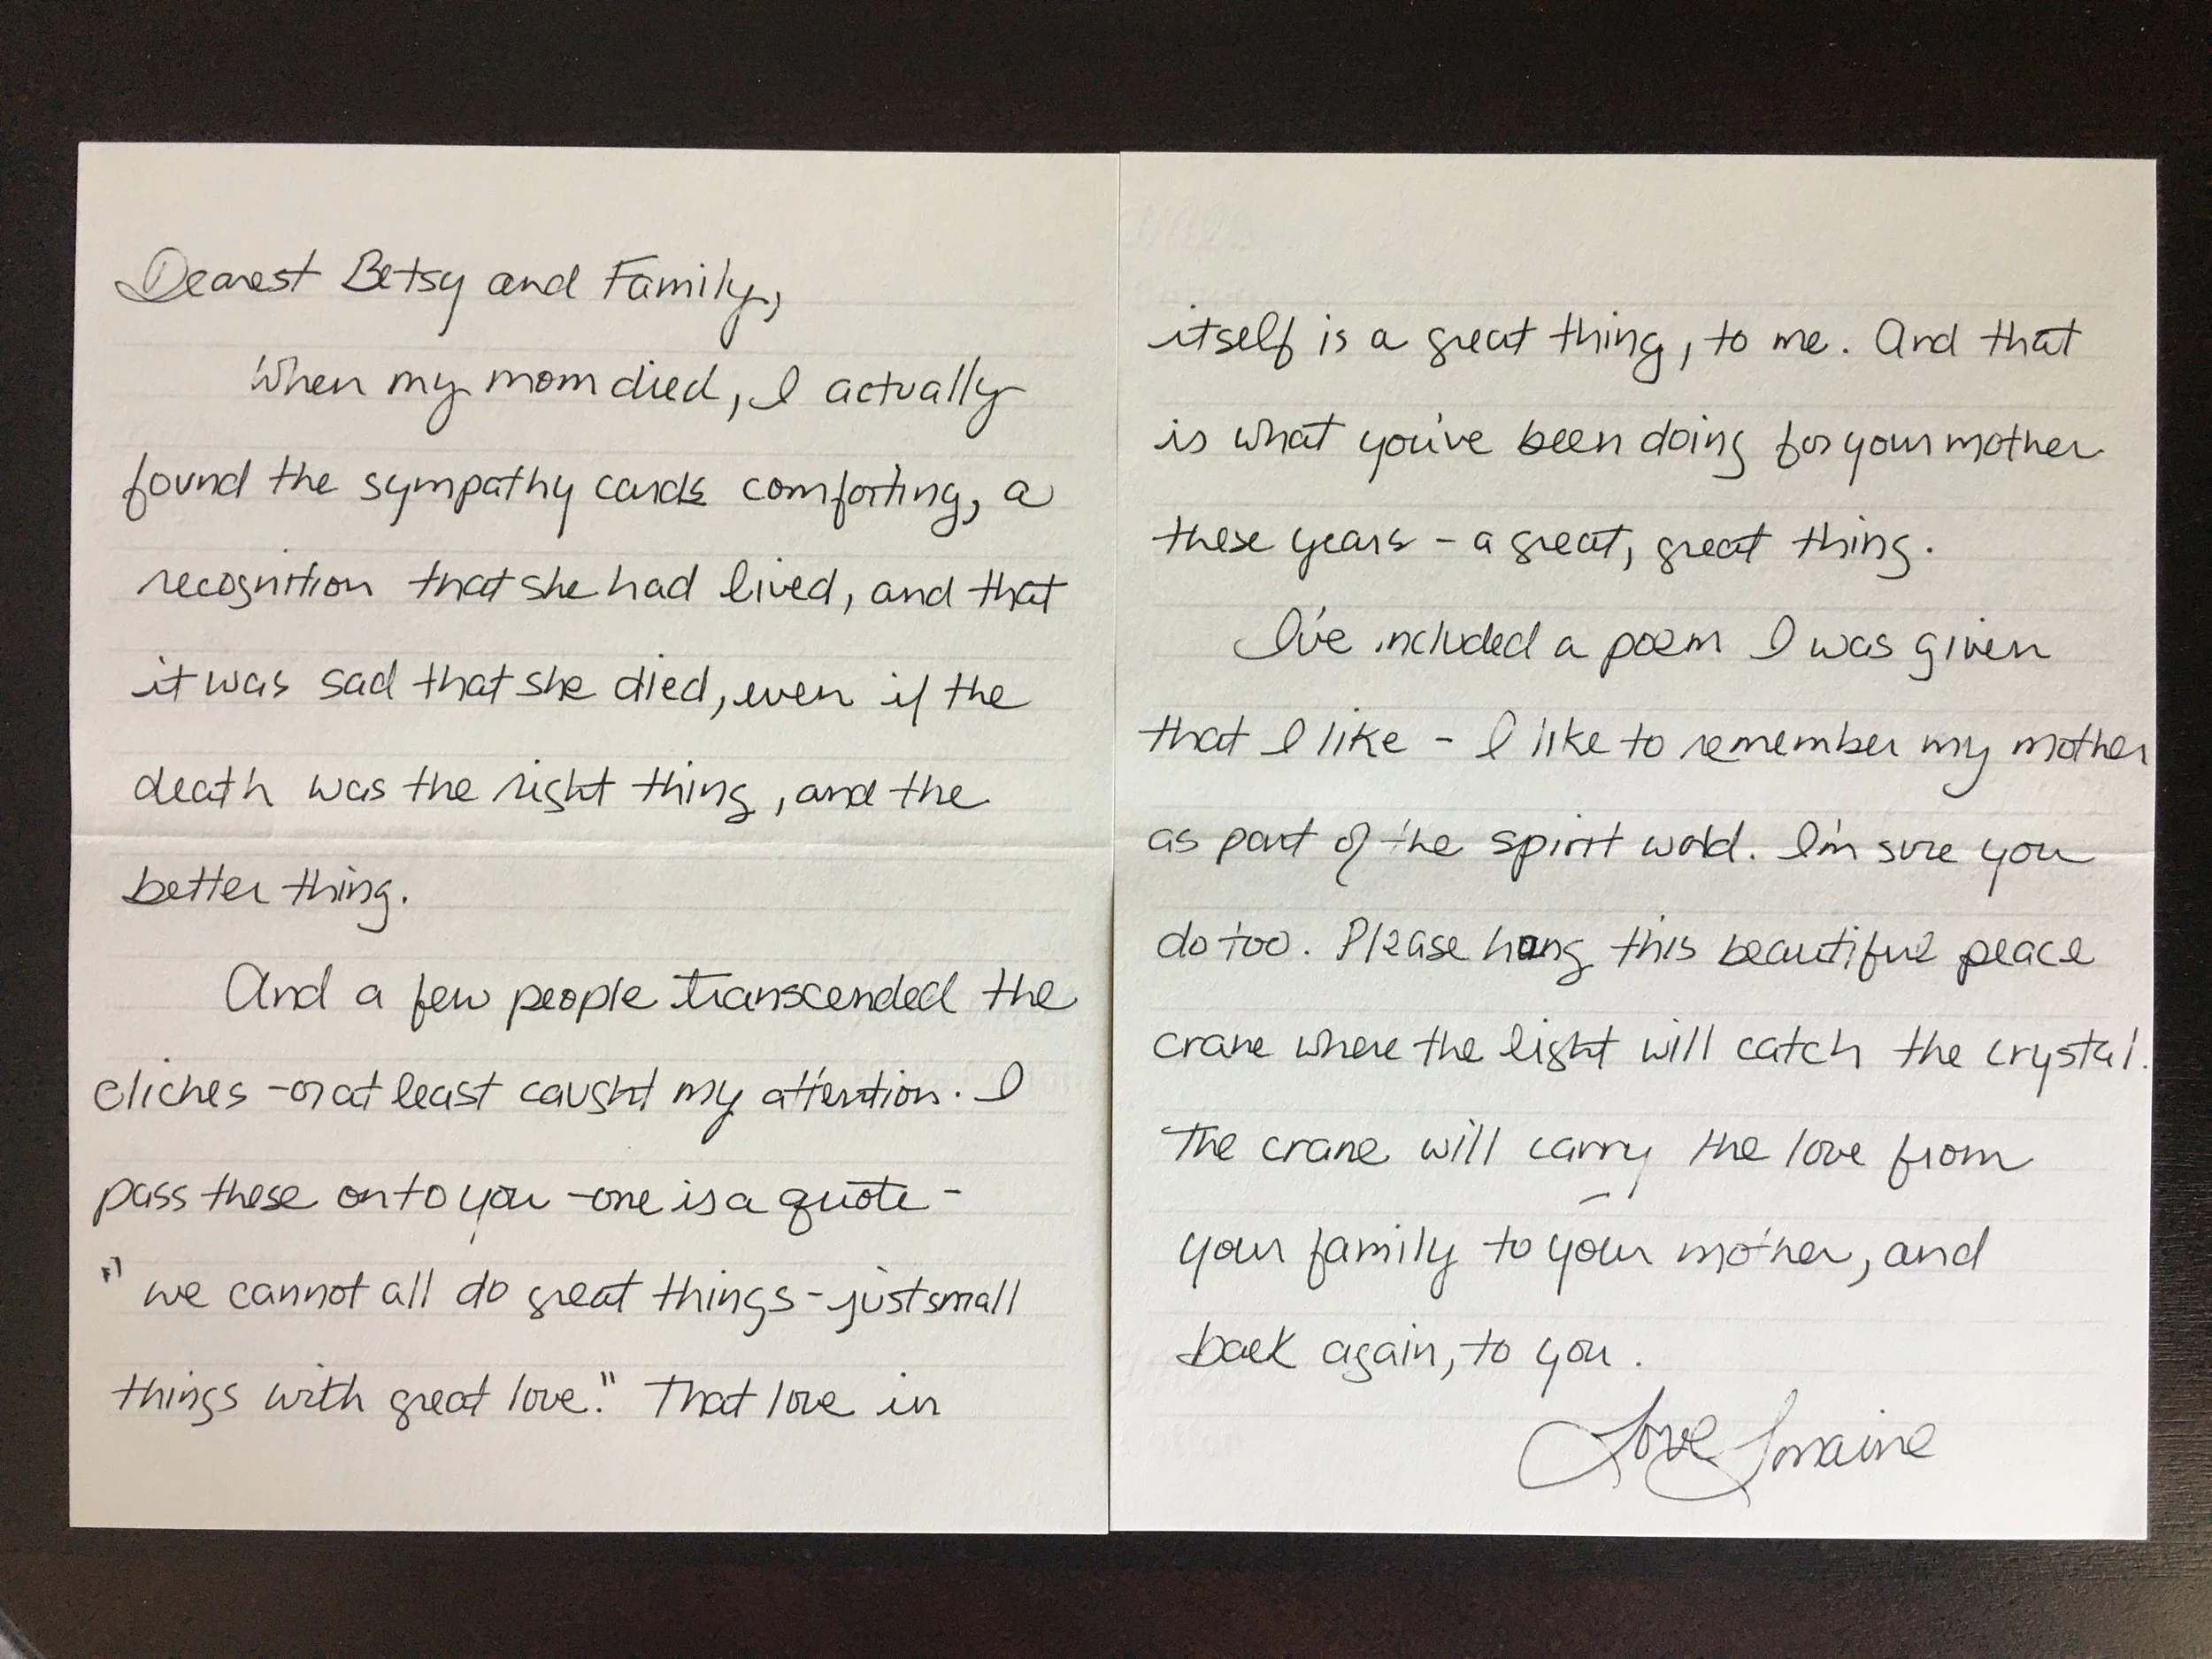 Dearest Betsy and Family,
When my mom died, I actually
found the sympathy cards comforting, a
recognition that she had lived, and that
it was sad that she died, even if the
death was the right thing, and the
better thing.
And a few people transcended the
cliches - or at least caught my attention. I
pass these on to you - one is a quote -
"we cannot all do great things - just small
things with great love." That love in
itself is a great thing, to me. And that
is what you've been doing for your mother
these years - a great, great thing.
I've included a poem I was given
that I like - I like to remember my mother
as part of the spirit world. I'm sure you
do too. Please hang this beautiful peace
crane where the light will catch the crystal.
The crane will carry the love from
your family to your mother, and
back again, to you.
Love Lorraine